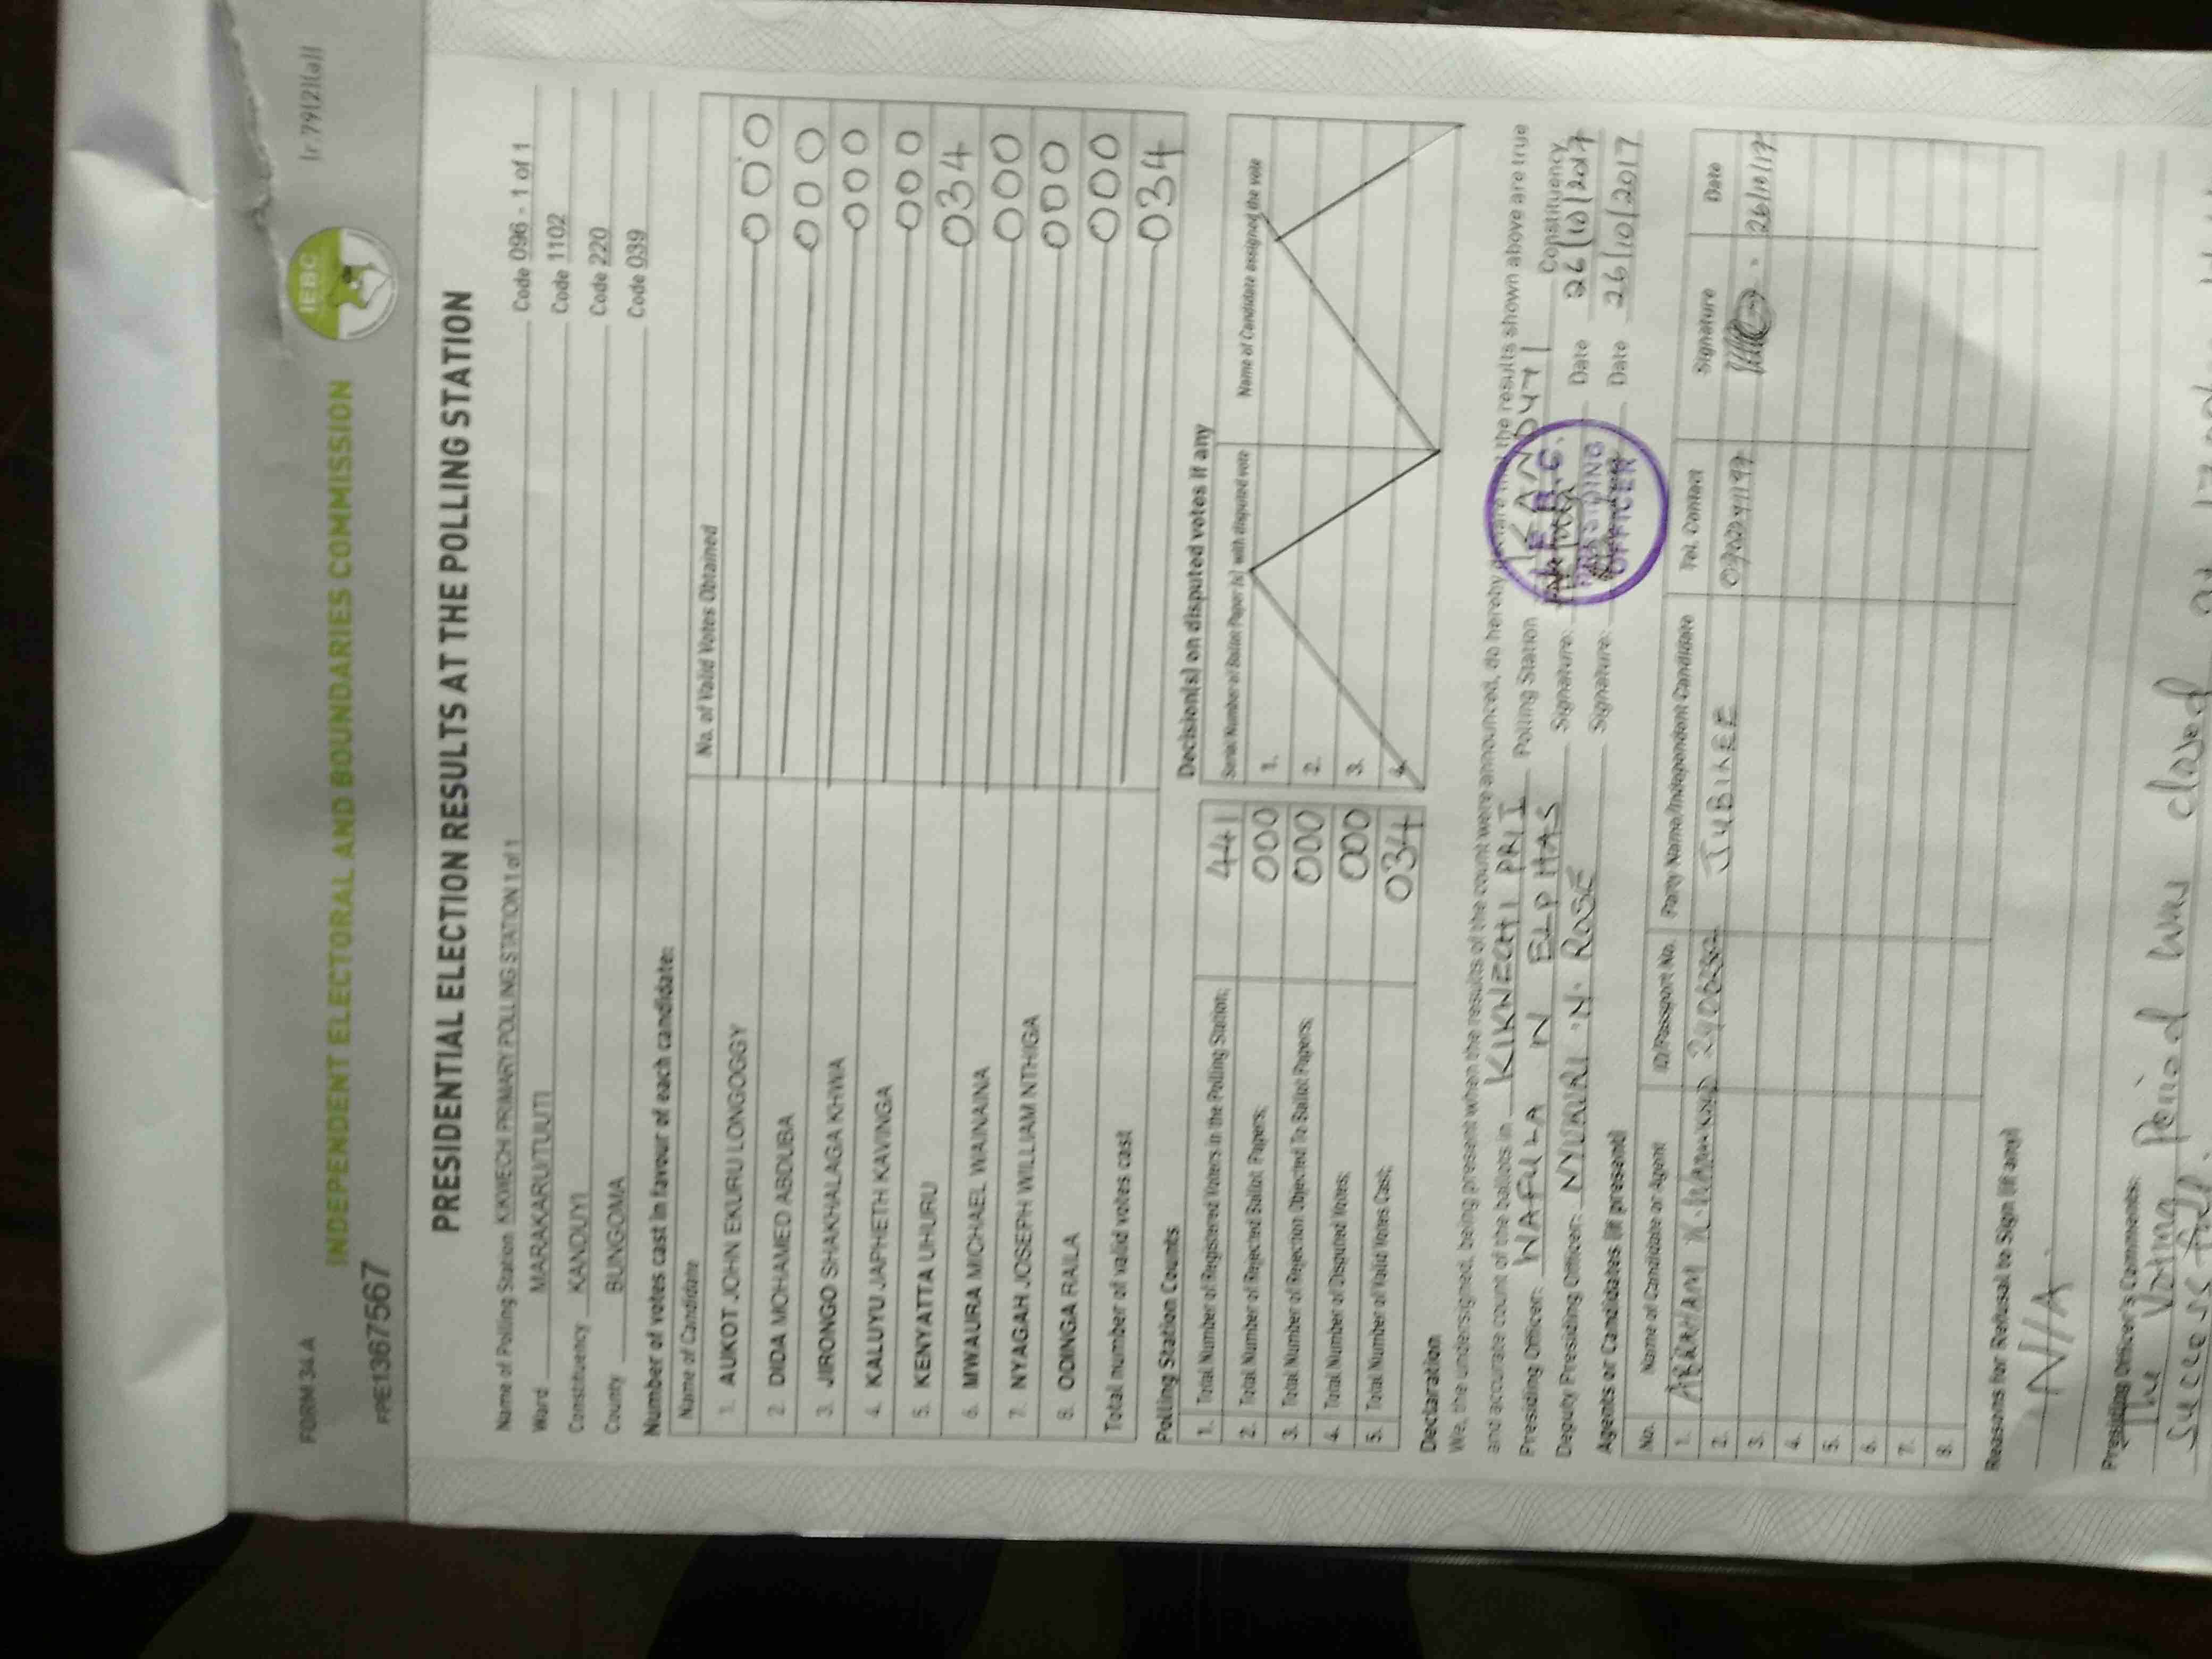 FORM 34A
INDEPENDENT ELECTORAL AND BOUNDARIES COMMISSION
IEBC
(r.79(2)(a))
PPE1367567
PRESIDENTIAL ELECTION RESULTS AT THE POLLING STATION
Name of Polling Station KIKWECHI PRIMARY POLLING STATION 1 of 1 Code 096 - 1 of 1
Ward MARAKARU/TUUTI Code 1102
Constituency KANDUYI Code 220
County BUNGOMA Code 039
Number of votes cast in favour of each candidate:
Name of Candidate No. of Valid Votes Obtained
1. AUKOT JOHN EKURU LONGOGGY 000
2. DIDA MOHAMED ABDUBA 000
3. JIRONGO SHAKHALAGA KHWA 000
4. KALUYU JAPHETH KAVINGA 000
5. KENYATTA UHURU 034
6. MWAURA MICHAEL WAINAINA 000
7. NYAGAH JOSEPH WILLIAM NTHIGA 000
8. ODINGA RAILA 000
Total number of valid votes cast 034
Polling Station Counts
1. Total Number of Registered Voters in the Polling Station: 441
2. Total Number of Rejected Ballot Papers: 000
3. Total Number of Rejection Objected To Ballot Papers: 000
4. Total Number of Disputed Votes: 000
5. Total Number of Valid Votes Cast: 034
Decision(s) on disputed votes if any
Serial Number of Ballot Paper (s) with disputed vote Name of Candidate assigned the vote
1.
2.
3.
4.
Declaration
We, the undersigned, being present when the results of the count were announced, do hereby declare that the results shown above are true
and accurate count of the ballots in KIKWECHI PRI Polling Station KANDUYI Constituency
Presiding Officer: WAFULA N ELPHAS Signature: Date 26/10/2017
Deputy Presiding Officer: NYUKURI N. ROSE Signature: Date 26/10/2017
I.E.B.C.
PRESIDING
OFFICER
Agents or Candidates (if present)
No. Name of Candidate or Agent ID/Passport No. Party Name/Independent Candidate Tel. Contact Signature Date
1. ABRAHAM JUBILEE 26/10/17
2.
3.
4.
5.
6.
7.
8.
Reasons for Refusal to Sign (if any)
N/A.
Presiding Officer's Comments:
The Voting Period was closed at
Successfully.